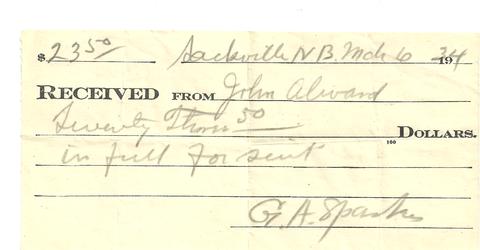 $23.50 Sackville N B. Mch 6 1934
RECEIVED FROM John Alward
Twenty Three 50 100 DOLLARS.
in full for rent
G. A. Sparks